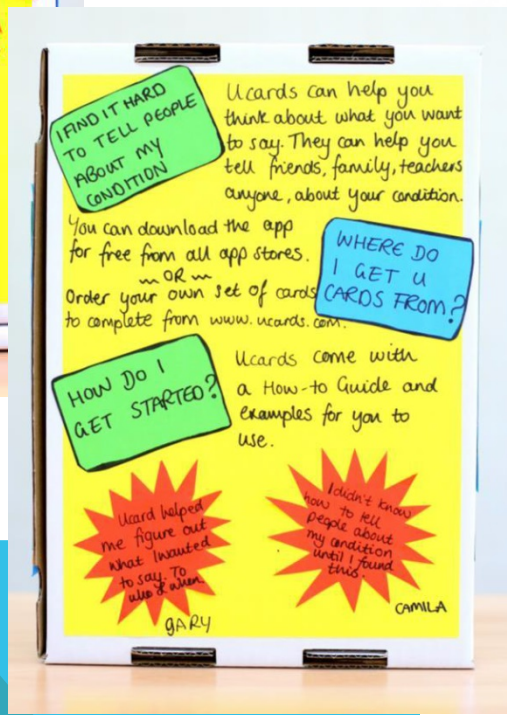 I FIND IT HARD
TO TELL PEOPLE
ABOUT MY
CONDITION
Ucards can help you
think about what you want
to say. They can help you
tell friends, family, teachers
anyone, about your condition.
You can download the app
for free from all app stores.
OR
Order your own set of cards
to complete from www.ucards.com.
WHERE DO
I GET U
CARDS FROM?
HOW DO I
GET STARTED?
Ucards come with
a How-to Guide and
examples for you to
use.
Ucard helped
me figure out
what I wanted
to say. To
who & when.
GARY
I didn't know
how to tell
people about
my condition
until I found
this.
CAMILA